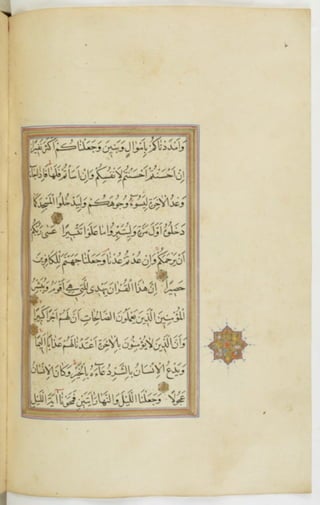 وَأَمْدَدْنَاكُمْ بِأَمْوَالٍ وَبَنِينَ وَجَعَلْنَاكُمْ أَكْثَرَ نَفِيرًا
إِنْ أَحْسَنْتُمْ أَحْسَنْتُمْ لِأَنْفُسِكُمْ وَإِنْ أَسَأْتُمْ فَلَهَا فَإِذَا جَاءَ
وَعْدُ الْآخِرَةِ لِيَسُوءُوا وُجُوهَكُمْ وَلِيَدْخُلُوا الْمَسْجِدَ كَمَا
دَخَلُوهُ أَوَّلَ مَرَّةٍ وَلِيُتَبِّرُوا مَا عَلَوْا تَتْبِيرًا عَسَى رَبُّكُمْ
أَنْ يَرْحَمَكُمْ وَإِنْ عُدْتُمْ عُدْنَا وَجَعَلْنَا جَهَنَّمَ لِلْكَافِرِينَ
حَصِيرًا إِنَّ هَذَا الْقُرْآنَ يَهْدِي لِلَّتِي هِيَ أَقْوَمُ وَيُبَشِّرُ
الْمُؤْمِنِينَ الَّذِينَ يَعْمَلُونَ الصَّالِحَاتِ أَنَّ لَهُمْ أَجْرًا كَبِيرًا
وَأَنَّ الَّذِينَ لَا يُؤْمِنُونَ بِالْآخِرَةِ أَعْتَدْنَا لَهُمْ عَذَابًا أَلِيمًا
وَيَدْعُ الْإِنْسَانُ بِالشَّرِّ دُعَاءَهُ بِالْخَيْرِ وَكَانَ الْإِنْسَانُ
عَجُولًا وَجَعَلْنَا اللَّيْلَ وَالنَّهَارَ آيَتَيْنِ فَمَحَوْنَا آيَةَ اللَّيْلِ